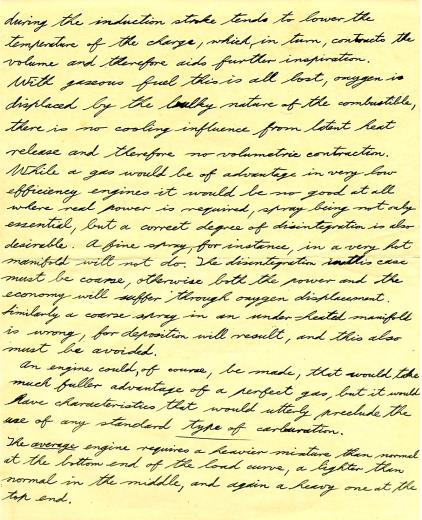 during the induction stroke tends to lower the
temperature of the charge, which, in turn, contracts the
volume and therefore aids further inspiration.
With gaseous fuel this is all lost, oxygen is
displaced by the bulky nature of the combustible,
there is no cooling influence from latent heat
release and therefore no volumetric contraction.
While a gas would be of advantage in very low
efficiency engines it would be no good at all
where real power is required, spray being not only
essential, but a correct degree of disintegration is also
desirable. A fine spray, for instance, in a very hot
manifold will not do. The disintegration in this case
must be coarse, otherwise both the power and the
economy will suffer through oxygen displacement.
Similarly a coarse spray in an under heated manifold
is wrong, for deposition will result, and this also
must be avoided.
An engine could, of course, be made, that would take
much fuller advantage of a perfect gas, but it would
have characteristics that would utterly preclude the
use of any standard type of carburation.
The average engine requires a heavier mixture than normal
at the bottom end of the load curve, a lighter than
normal in the middle, and again a heavy one at the
top end.